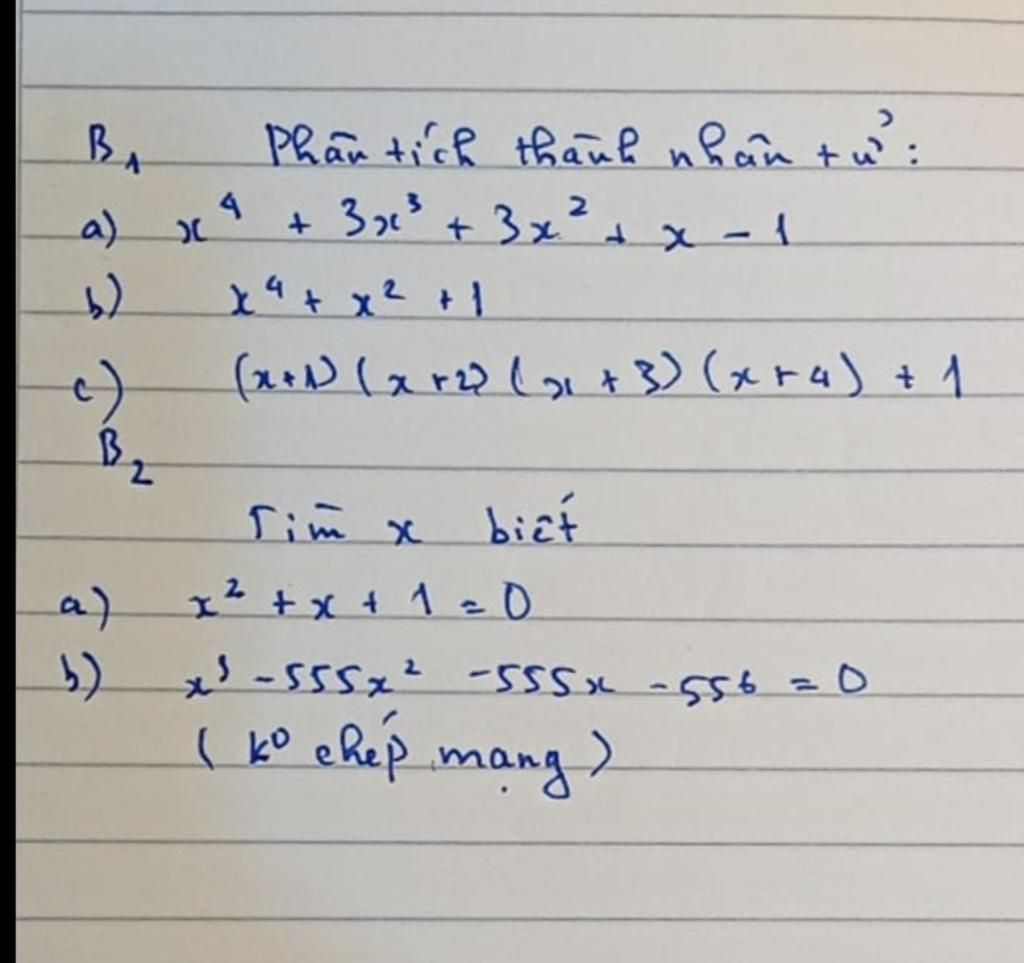 B₁ Phân tích thành nhân tử:
a) x⁴ + 3x³ + 3x² + x - 1
b) x⁴ + x² + 1
c) (x+1)(x+2)(x+3)(x+4) + 1
B₂
Tìm x biết
a) x² + x + 1 = 0
b) x³ - 555x² - 555x - 556 = 0
(k⁰ chép mạng)